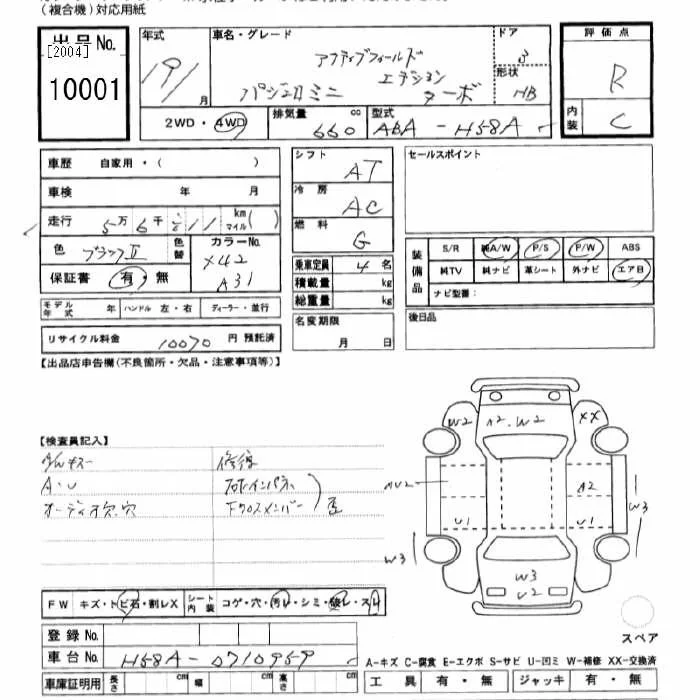 (複合機)対応用紙
出品No. [2004] 10001
年式 19 / 月
車名・グレード アクティブフィールド
エディション
パジェロミニ ターボ
ドア 3
形状 HB
2WD・4WD
排気量 660 cc
型式 ABA-H58A
評価点 R
内装 C
車歴 自家用・( )
車検 年 月
走行 5万 6千 11 km マイル ( )
色 ブラックⅡ 色替
カラーNo. X42
A31
保証書 有・無
モデル年式 年 ハンドル 左・右 ディーラー・並行
リサイクル料金 10070 円 預託済
シフト AT
冷房 AC
燃料 G
乗車定員 4 名
積載量 kg
総重量 kg
名変期限 月 日
セールスポイント
装備品 S/R 純A/W P/S P/W ABS
純TV 純ナビ 革シート 外ナビ エアB
ナビ型番:
後日品
【出品店申告欄(不良箇所・欠品・注意事項等)】
【検査員記入】
A・U
オーディオ欠.穴
修復
下クロスメンバー
歪
W2 A2.W2 XX
AU2 A2
U1 U1
W3 W3
W3
U2
スペア
FW キズ・トビ石・割レX
シート内装 コゲ・穴・汚レ・シミ・破レ・スレ
登録No.
車台No. H58A-0710959
車庫証明用 長さ cm 幅 cm 高さ cm
A-キズ C-腐食 E-エクボ S-サビ U-凹ミ W-補修 XX-交換済
工具 有・無 ジャッキ 有・無